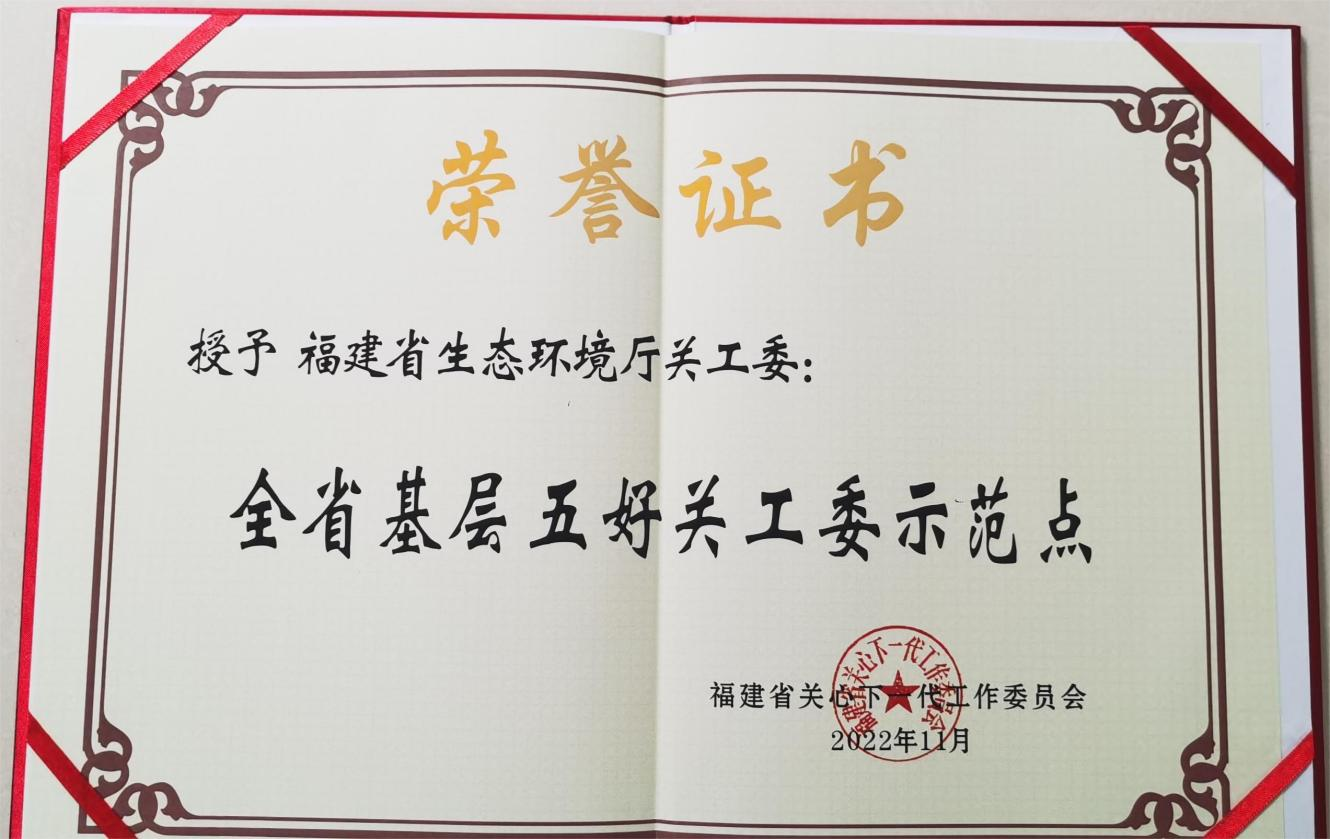 荣誉证书
授予 福建省生态环境厅关工委：
全省基层五好关工委示范点
福建省关心下一代工作委员会
福建省关心下一代工作委员会
2022年11月